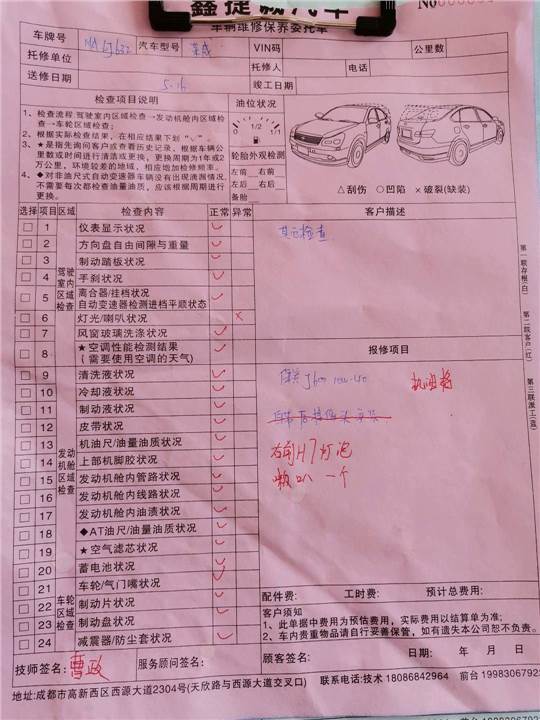 鑫捷颖汽车
No
车辆维修保养委托车
车牌号 汽车型号 VIN码 公里数
托修单位 托修人 电话
送修日期 5.16 竣工日期
检查项目说明 油位状况
1、检查流程 驾驶室内区域检查→发动机舱内区域检查→车轮区域检查;
2、根据实际检查结果,在相应结果下划“√”。
3、★是指先询问客户或查看历史记录,根据车辆公里数或时间进行清洁或更换,更换周期为1年或2万公里,环境较差的地域,相应增加检修频率。
4、◆对非油尺式自动变速器车辆没有出现泄漏情况,不需要每次都检查油量油质,应该根据周期进行更换。
1/2 1/1
轮胎外观检测
左前 右前
左后 右后
备胎
△刮伤 ○凹陷 ×破裂(缺装)
选择 项目 区域 检查内容 正常 异常 客户描述
驾驶室内区域检查
1 仪表显示状况 √
其它检查
2 方向盘自由间隙与重量 √
3 制动踏板状况 √
4 手刹状况 √
5 离合器/挂档状况
自动变速器检测进档平顺状态 √
6 灯光/喇叭状况 ×
7 风窗玻璃洗涤状况 √
8 ★空调性能检测结果
(需要使用空调的天气) √
报修项目
发动机舱区域检查
9 清洗液状况 √
10 冷却液状况 √
机油格
11 制动液状况 √
12 皮带状况 √
13 机油尺/油量油质状况 √
右前H7灯泡
14 上部机脚胶状况 √
15 发动机舱内管路状况 √
喇叭 一个
16 发动机舱内线路状况 √
17 发动机舱内油渍状况 √
18 ◆AT油尺/油量油质状况 √
19 ★空气滤芯状况 √
20 蓄电池状况 √
车轮区域检查
21 车轮/气门嘴状况 √
22 制动片状况 √
23 制动盘状况 √
24 减震器/防尘套状况 √
配件费: 工时费: 预计总费用:
客户须知
1、此单据中费用为预估费用,实际费用以结算单为准;
2、车内贵重物品请自行妥善保管,如有遗失本公司恕不负责。
技师签名: 曹政 服务顾问签名: 顾客签名: 日期: 年 月 日
地址:成都市高新西区西源大道2304号(天欣路与西源大道交叉口) 联系电话:技术 18086842964 前台 1998306792
第一联存根(白)
第二联客户(红)
第三联派工(蓝)